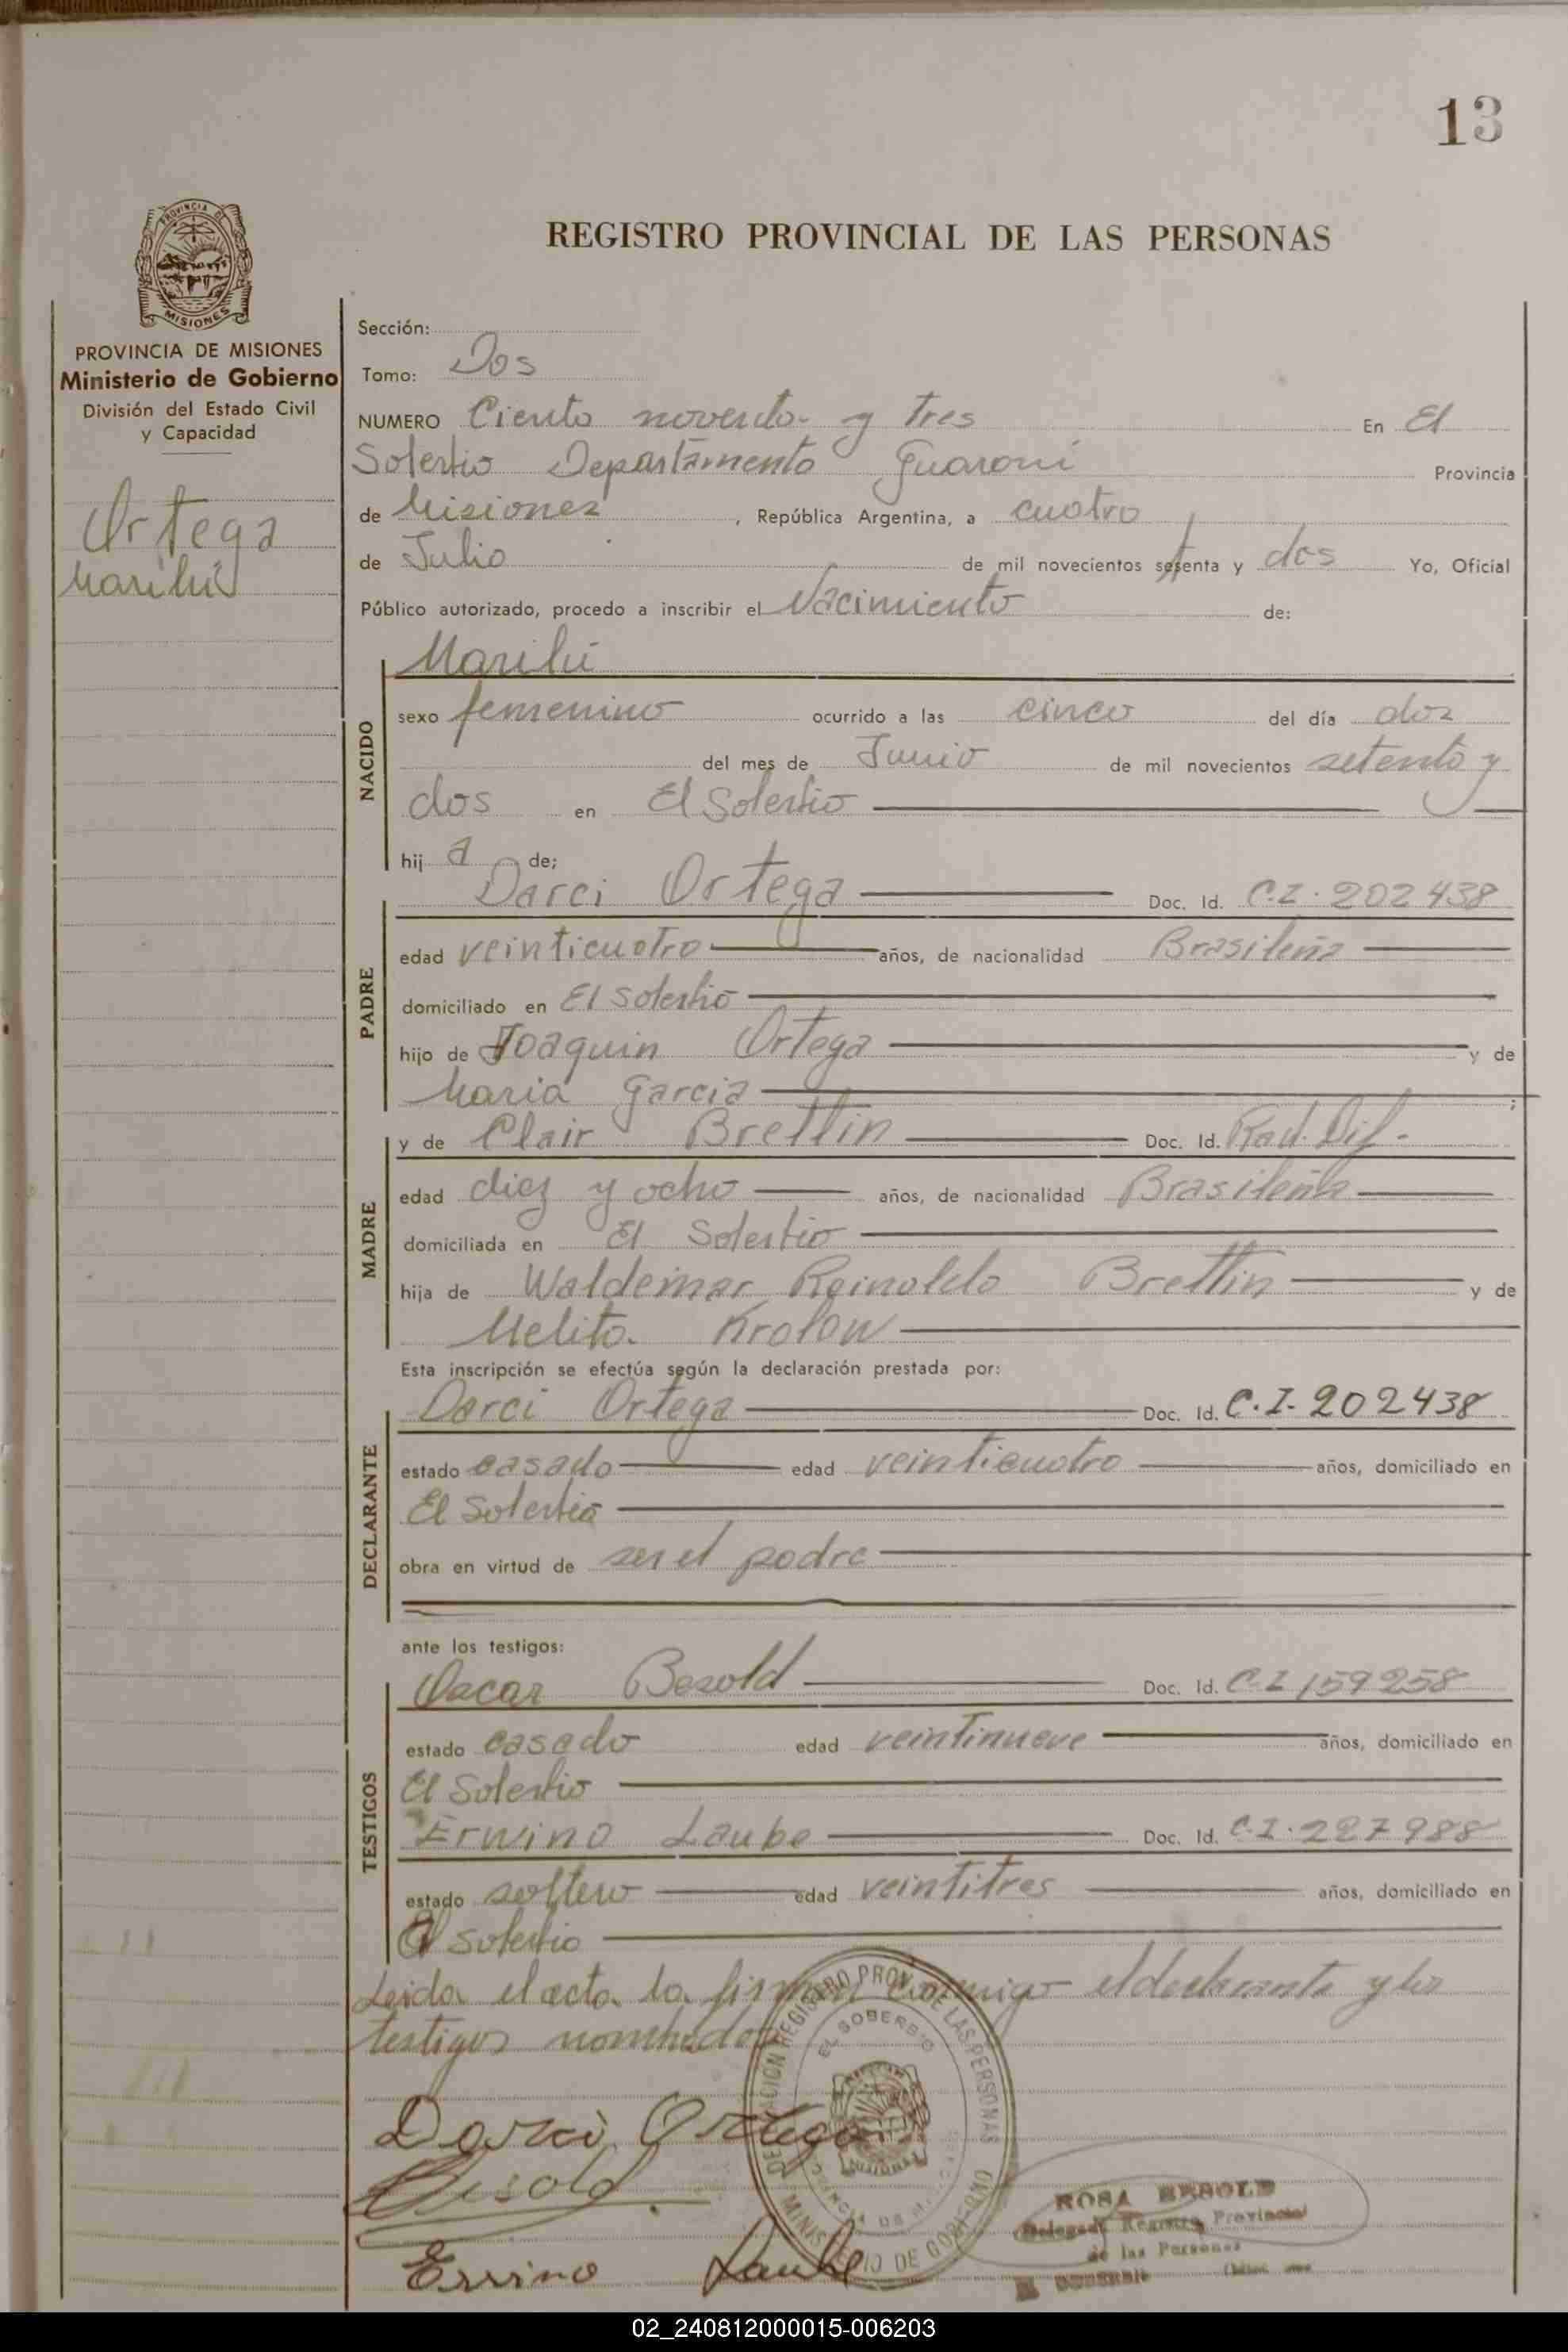 13
PROVINCIA DE
MISIONES
REGISTRO PROVINCIAL DE LAS PERSONAS
PROVINCIA DE MISIONES
Ministerio de Gobierno
División del Estado Civil
y Capacidad
Ortega
Marilú
Sección:
Tomo: Dos
NUMERO Ciento noventa y Tres En El
Soberbio Departamento Guaraní Provincia
de Misiones, República Argentina, a cuatro
de Julio de mil novecientos setenta y dos Yo, Oficial
Público autorizado, procedo a inscribir el Nacimiento de:
NACIDO
Marilú
sexo femenino ocurrido a las cinco del día dos
del mes de Junio de mil novecientos setenta y
dos en El Soberbio
hij a de;
PADRE
Darci Ortega Doc. Id. C.I. 202438
edad veinticuatro años, de nacionalidad Brasileña
domiciliado en El Soberbio
hijo de Joaquin Ortega y de
Maria Garcia ;
MADRE
y de Clair Brettin Doc. Id. Rad. Dif.
edad diez y ocho años, de nacionalidad Brasileña
domiciliada en El Soberbio
hija de Waldemar Reinoldo Brettin y de
Melita Krolow
Esta inscripción se efectúa según la declaración prestada por:
DECLARANTE
Darci Ortega Doc. Id. C.I. 202438
estado casado edad veinticuatro años, domiciliado en
El Soberbio
obra en virtud de ser el padre
ante los testigos:
TESTIGOS
Oscar Besold Doc. Id. C.I 159258
estado casado edad veintinueve años, domiciliado en
El Soberbio
Erwino Laube Doc. Id. C.I. 227988
estado soltero edad veintitres años, domiciliado en
El Soberbio
Leida el acta la firman conmigo el declarante y los
testigos nombrados
DELEGACION REGISTRO PROV. DE LAS PERSONAS
EL SOBERBIO
MINISTERIO DE GOBIERNO
Darci Ortega
Besold
Ervino Laube
ROSA BESOLD
Delegada Registro Provincial
de las Personas
02_240812000015-006203